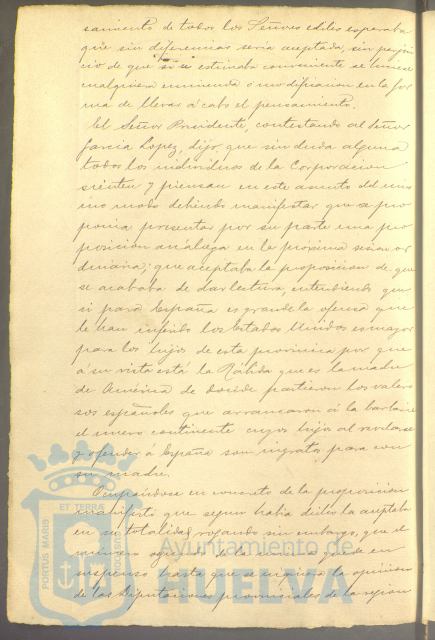 samiento de todos los Señores ediles esperaba
que sin diferencias seria aceptada, sin perjui
cio de que si se estimaba conveniente se hiciese
cualquiera enmienda ó modificacion en la for
ma de llevar á cabo el pensamiento.
El Señor Presidente, contestando al Señor
Garcia Lopez, dijo, que sin duda alguna
todos los individuos de la Corporacion
sienten y piensan en este asunto del mis
mo modo debiendo manifestar que se pro
ponia presentar por su parte una pro
posicion análoga en la próxima sesion or
dinaria; que aceptaba la proposicion de que
se acababa de dar lectura, entendiendo que
si para España es grande la ofensa que
le han inferido los Estados Unidos es mayor
para los hijos de esta provincia por que
á su vista está la Rábida que es la madre
de América de donde partieron los valero
sos españoles que arrancaron á la barbarie
el nuevo continente cuyos hijos al
y ofender á España son ingratos para con
su madre.
Ocupándose en concreto de la proposicion
manifestó que segun habia dicho la aceptaba
en su totalidad, rogando sin embargo, que el
número de la misma quede en
suspenso hasta que se la opinion
de las Diputaciones provinciales de la region
PORTUS MARIS
ET TERRÆ
CUSTODIA
Ayuntamiento de
HUELVA